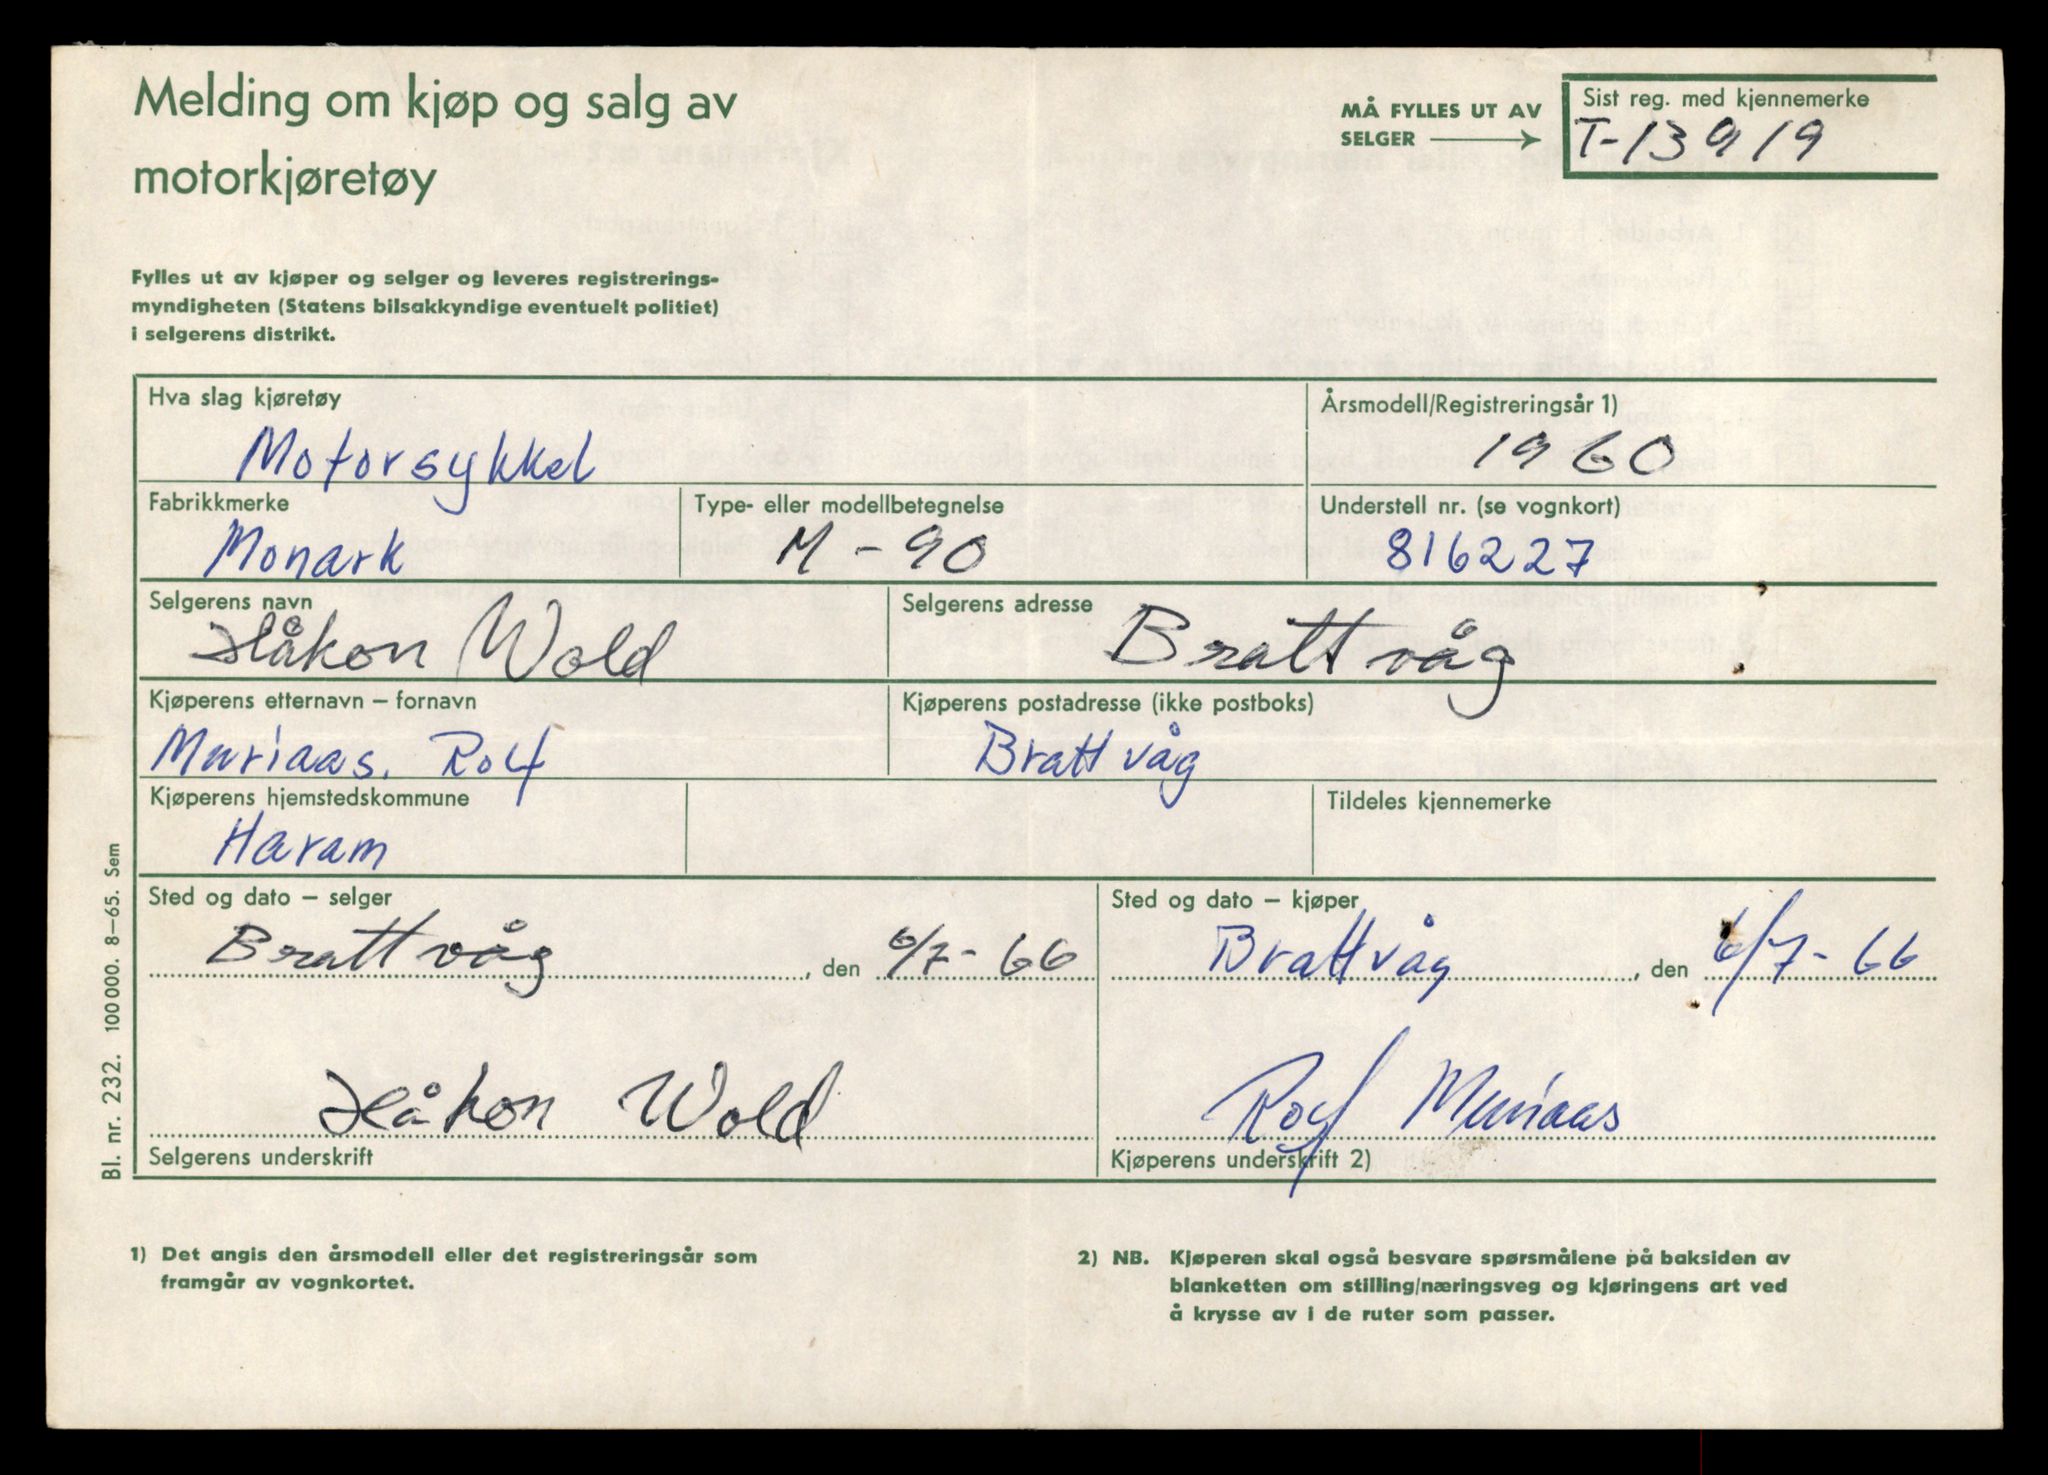 Melding om kjøp og salg av
motorkjøretøy
MÅ FYLLES UT AV
SELGER
Sist reg. med kjennemerke
T-13919
Fylles ut av kjøper og selger og leveres registrerings-
myndigheten (Statens bilsakkyndige eventuelt politiet)
i selgerens distrikt.
Hva slag kjøretøy
Motorsykkel
Årsmodell/Registreringsår 1)
1960
Fabrikkmerke
Monark
Type- eller modellbetegnelse
M - 90
Understell nr. (se vognkort)
816227
Selgerens navn
Håkon Wold
Selgerens adresse
Brattvåg
Kjøperens etternavn – fornavn
Muriaas. Rolf
Kjøperens postadresse (ikke postboks)
Brattvåg
Kjøperens hjemstedskommune
Haram
Tildeles kjennemerke
Sted og dato – selger
Brattvåg, den 6/7 - 66
Sted og dato – kjøper
Brattvåg, den 6/7 - 66
Håkon Wold
Selgerens underskrift
Rolf Muriaas
Kjøperens underskrift 2)
Bl. nr. 232. 100 000. 8–65. Sem
1) Det angis den årsmodell eller det registreringsår som
framgår av vognkortet.
2) NB. Kjøperen skal også besvare spørsmålene på baksiden av
blanketten om stilling/næringsveg og kjøringens art ved
å krysse av i de ruter som passer.